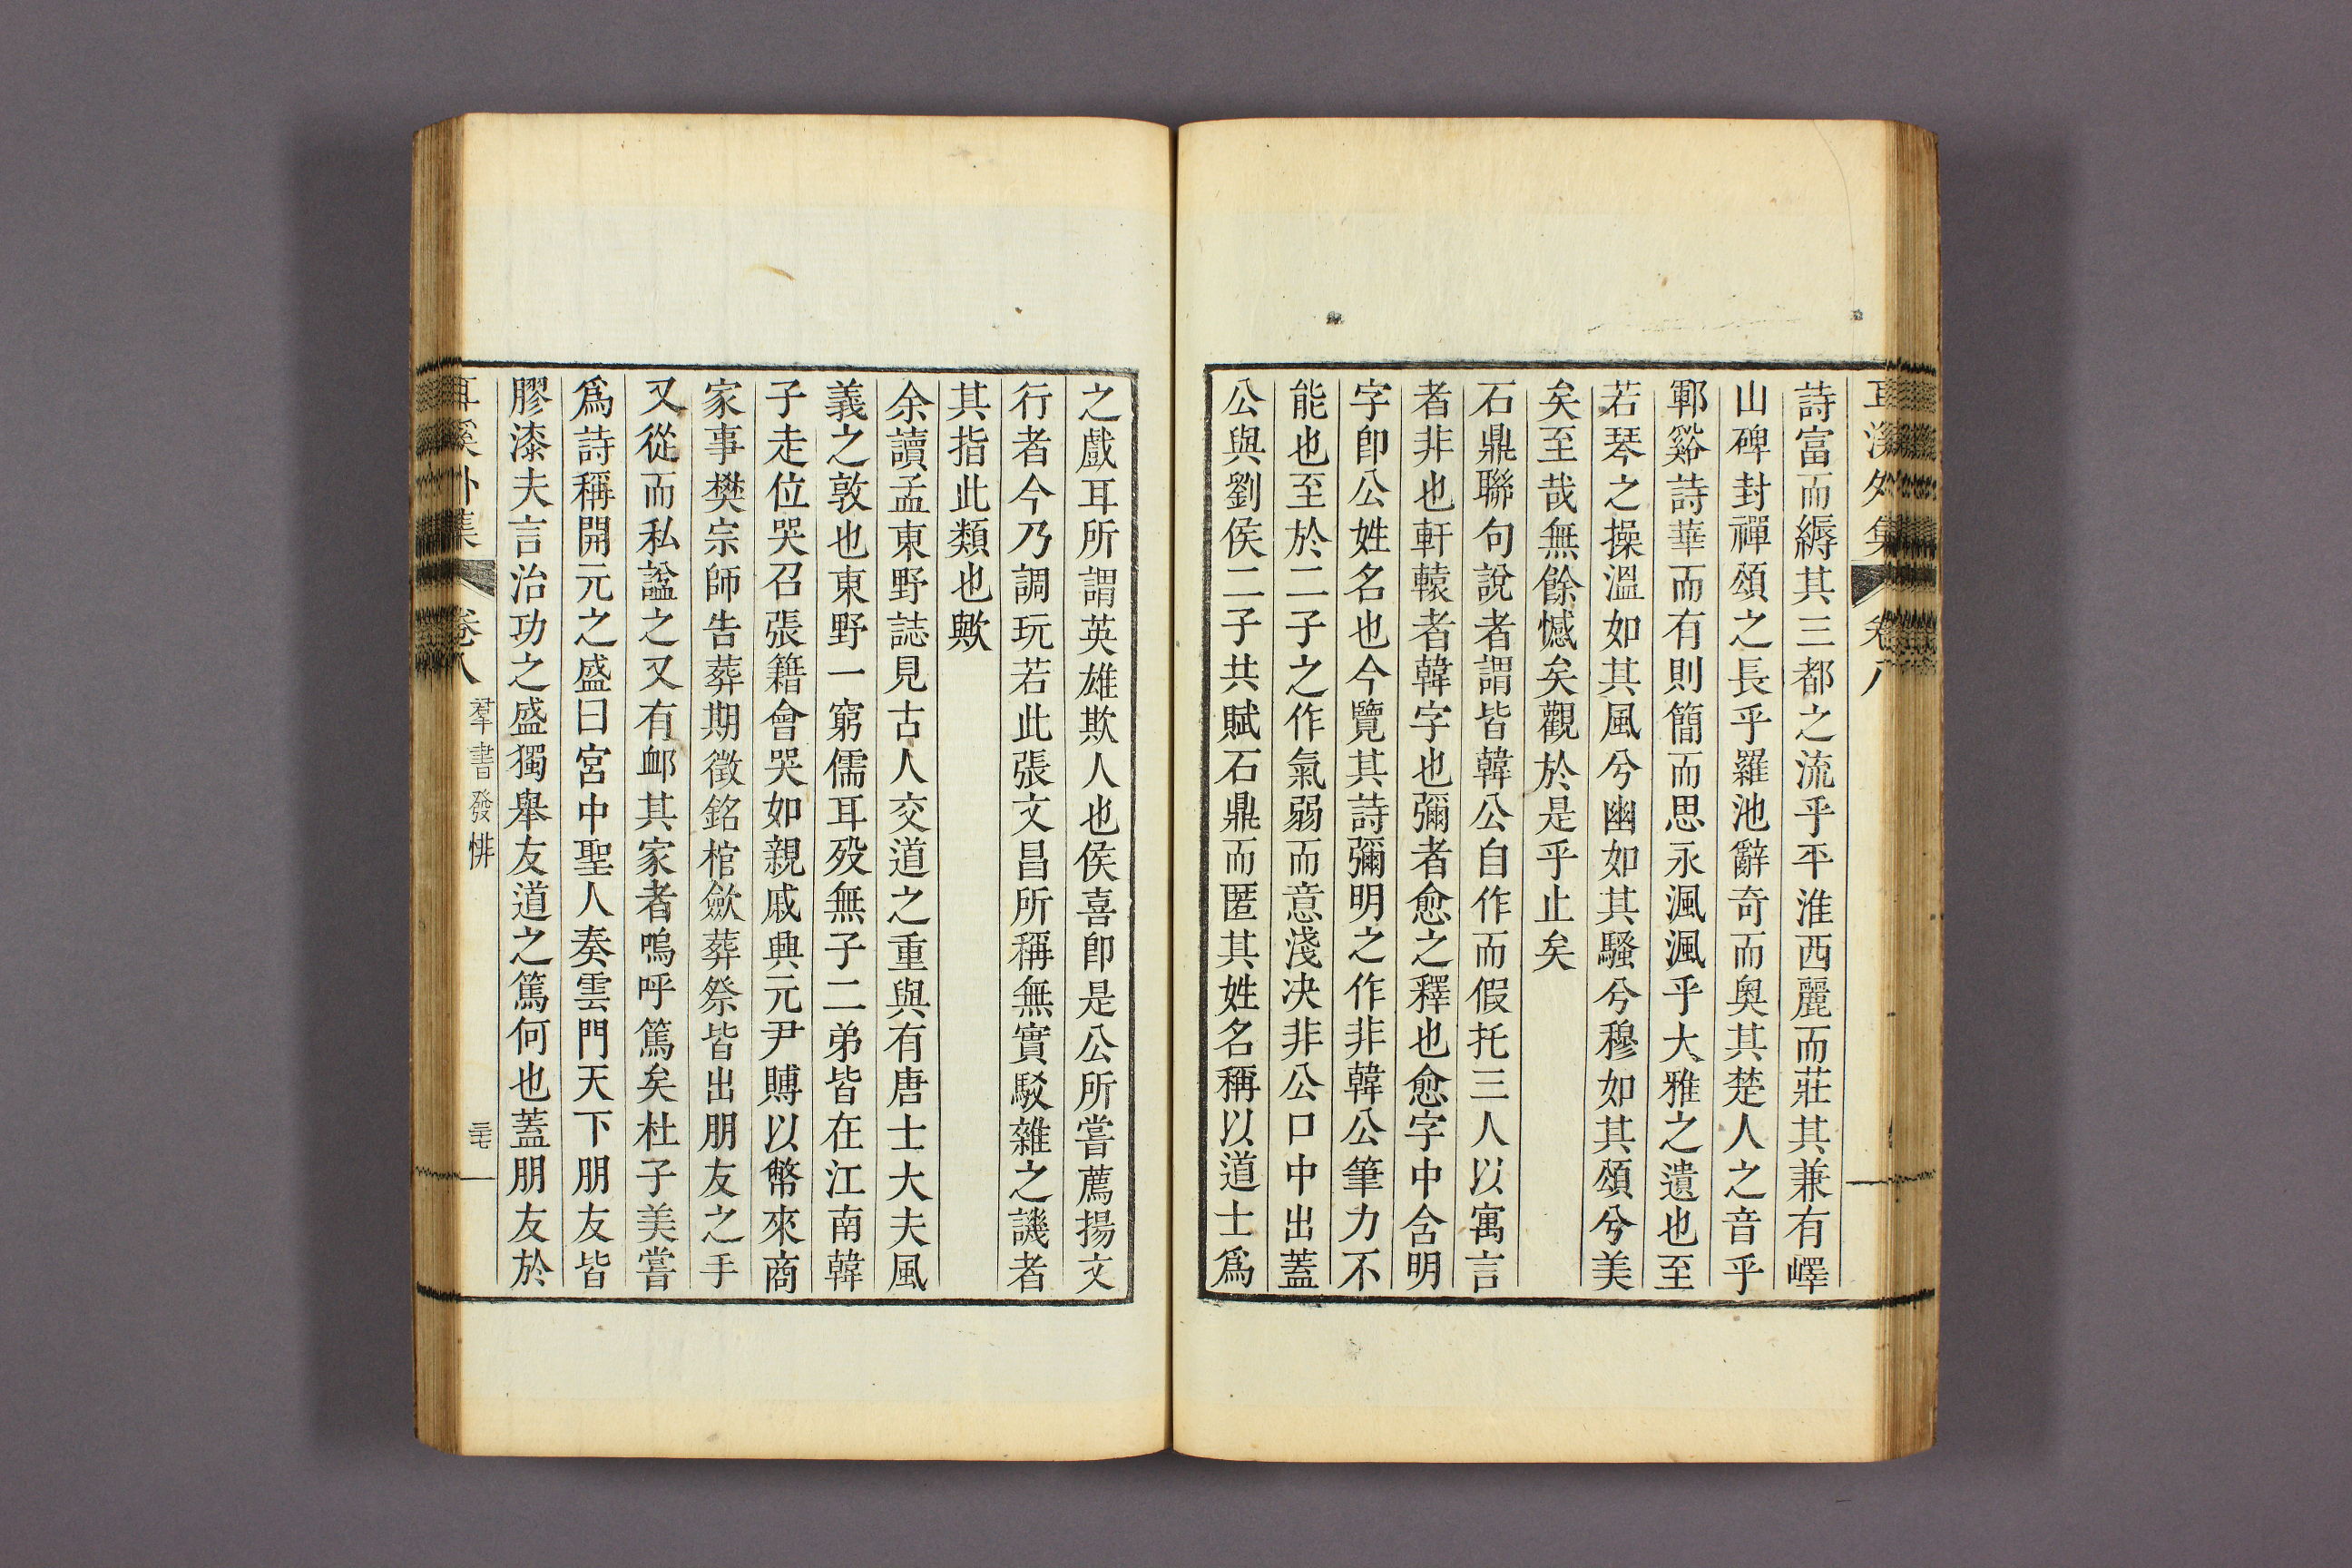 耳溪外集 卷八
詩富而縟其三都之流乎平淮西麗而莊其兼有嶧
山碑封禪頌之長乎羅池辭奇而奧其楚人之音乎
鄆谿詩華而有則簡而思永渢渢乎大雅之遺也至
若琴之操溫如其風兮幽如其騷兮穆如其頌兮美
矣至哉無餘憾矣觀於是乎止矣
石鼎聯句說者謂皆韓公自作而假托三人以寓言
者非也軒轅者韓字也彌者愈之釋也愈字中含明
字卽公姓名也今覽其詩彌明之作非韓公筆力不
能也至於二子之作氣弱而意淺决非公口中出蓋
公與劉侯二子共賦石鼎而匿其姓名稱以道士爲
之戲耳所謂英雄欺人也侯喜卽是公所嘗薦揚文
行者今乃調玩若此張文昌所稱無實駁雜之譏者
其指此類也歟
余讀孟東野誌見古人交道之重與有唐士大夫風
義之敦也東野一窮儒耳歿無子二弟皆在江南韓
子走位哭召張籍會哭如親戚興元尹賻以幣來商
家事樊宗師告葬期徵銘棺歛葬祭皆出朋友之手
又從而私諡之又有卹其家者嗚呼篤矣杜子美嘗
爲詩稱開元之盛曰宮中聖人奏雲門天下朋友皆
膠漆夫言治功之盛獨擧友道之篤何也蓋朋友於
耳溪外集 卷八 羣書發悱 三七